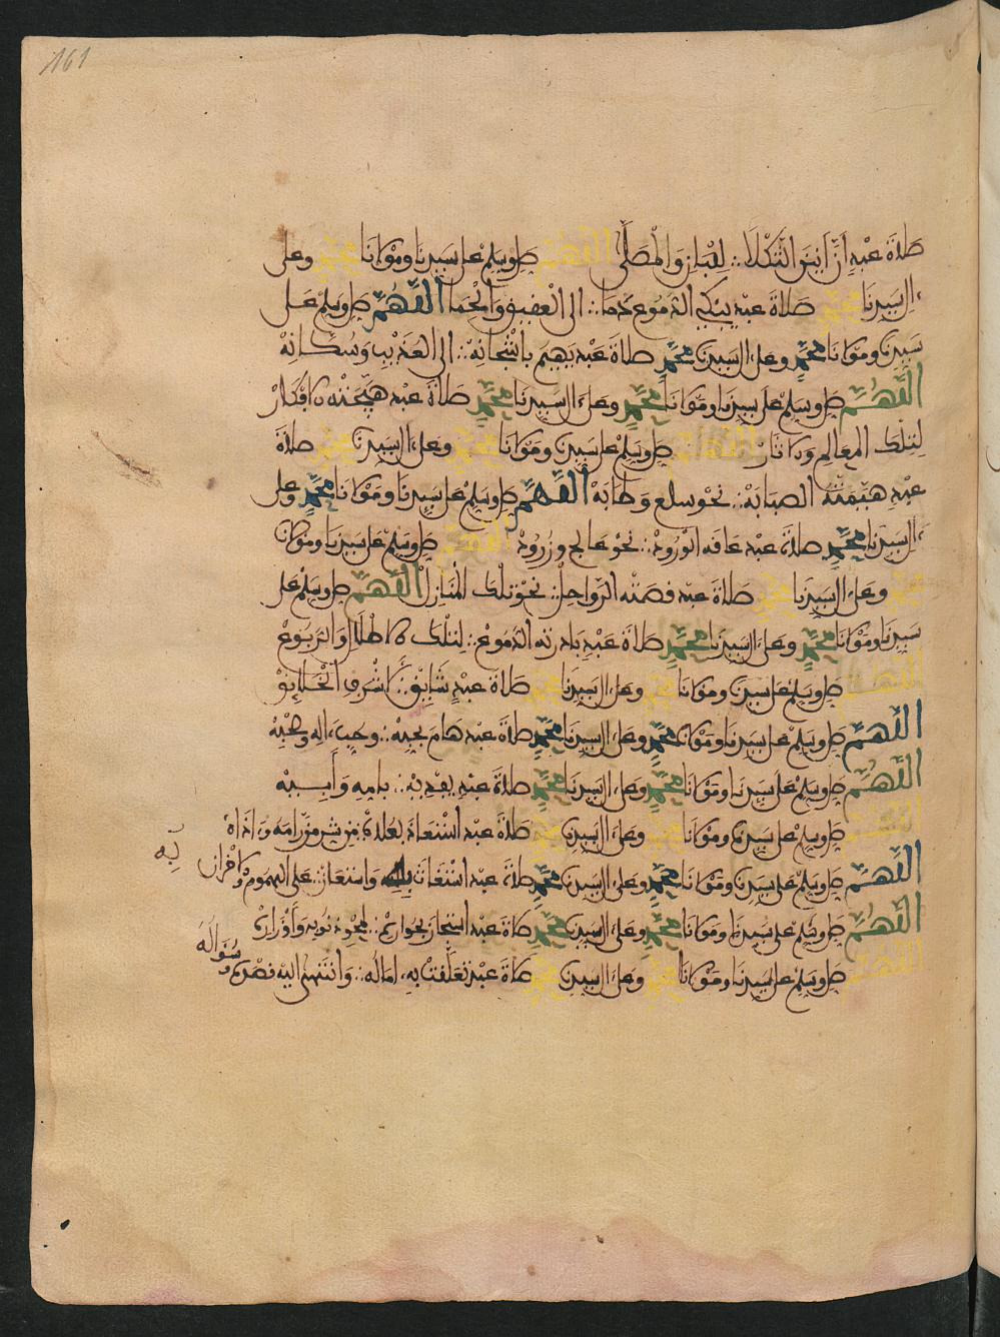 161
صلاة عبد أنّ أنين الثكلا لقباء والمصلّى اللهم صل وسلم على سيدنا ومولانا محمد وعلى
ءال سيدنا محمد صلاة عبد يبكي الدموع دما الى العقيق والحما اللهم صل وسلم على
سيدنا ومولانا محمد وعلى ءال سيدنا محمد صلاة عبد يهيم باشجانه الى العذيب وسكانه
اللهم صل وسلم على سيدنا ومولانا محمد وعلى ءال سيدنا محمد صلاة عبد هيجته الافكار
لتلك المعالم والاثار اللهم صل وسلم على سيدنا ومولانا محمد وعلى ءال سيدنا محمد صلاة
عبد هيمته الصبابة نحو سلع وطابة اللهم صل وسلم على سيدنا ومولانا محمد وعلى
ءال سيدنا محمد صلاة عبد عاقه الورود نحو عالج وزرود اللهم صل وسلم على سيدنا ومولانا
محمد وعلى ءال سيدنا محمد صلاة عبد قصته الرواحل نحو تلك المنازل اللهم صل وسلم على
سيدنا ومولانا محمد وعلى ءال سيدنا محمد صلاة عبد بادرته الدموع لتلك الاطلال والربوع
اللهم صل وسلم على سيدنا ومولانا محمد وعلى ءال سيدنا محمد صلاة عبد شايق لاشرف الخلايق
اللهم صل وسلم على سيدنا ومولانا محمد وعلى ءال سيدنا محمد صلاة عبد هام بحبه وحب ءاله وصحبه
اللهم صل وسلم على سيدنا ومولانا محمد وعلى ءال سيدنا محمد صلاة عبد يفديه بامه وأبيه
اللهم صل وسلم على سيدنا ومولانا محمد وعلى ءال سيدنا محمد صلاة عبد استعاذ بعلاه من شر من رامه واذاه
اللهم صل وسلم على سيدنا ومولانا محمد وعلى ءال سيدنا محمد صلاة عبد استغاث به واستعان على الهموم والاحزان
اللهم صل وسلم على سيدنا ومولانا محمد وعلى ءال سيدنا محمد صلاة عبد استجار بجواره لمحو ذنوبه وأوزاره
اللهم صل وسلم على سيدنا ومولانا محمد وعلى ءال سيدنا محمد صلاة عبد تعلقت به ءاماله وانتهى اليه قصده وسؤاله